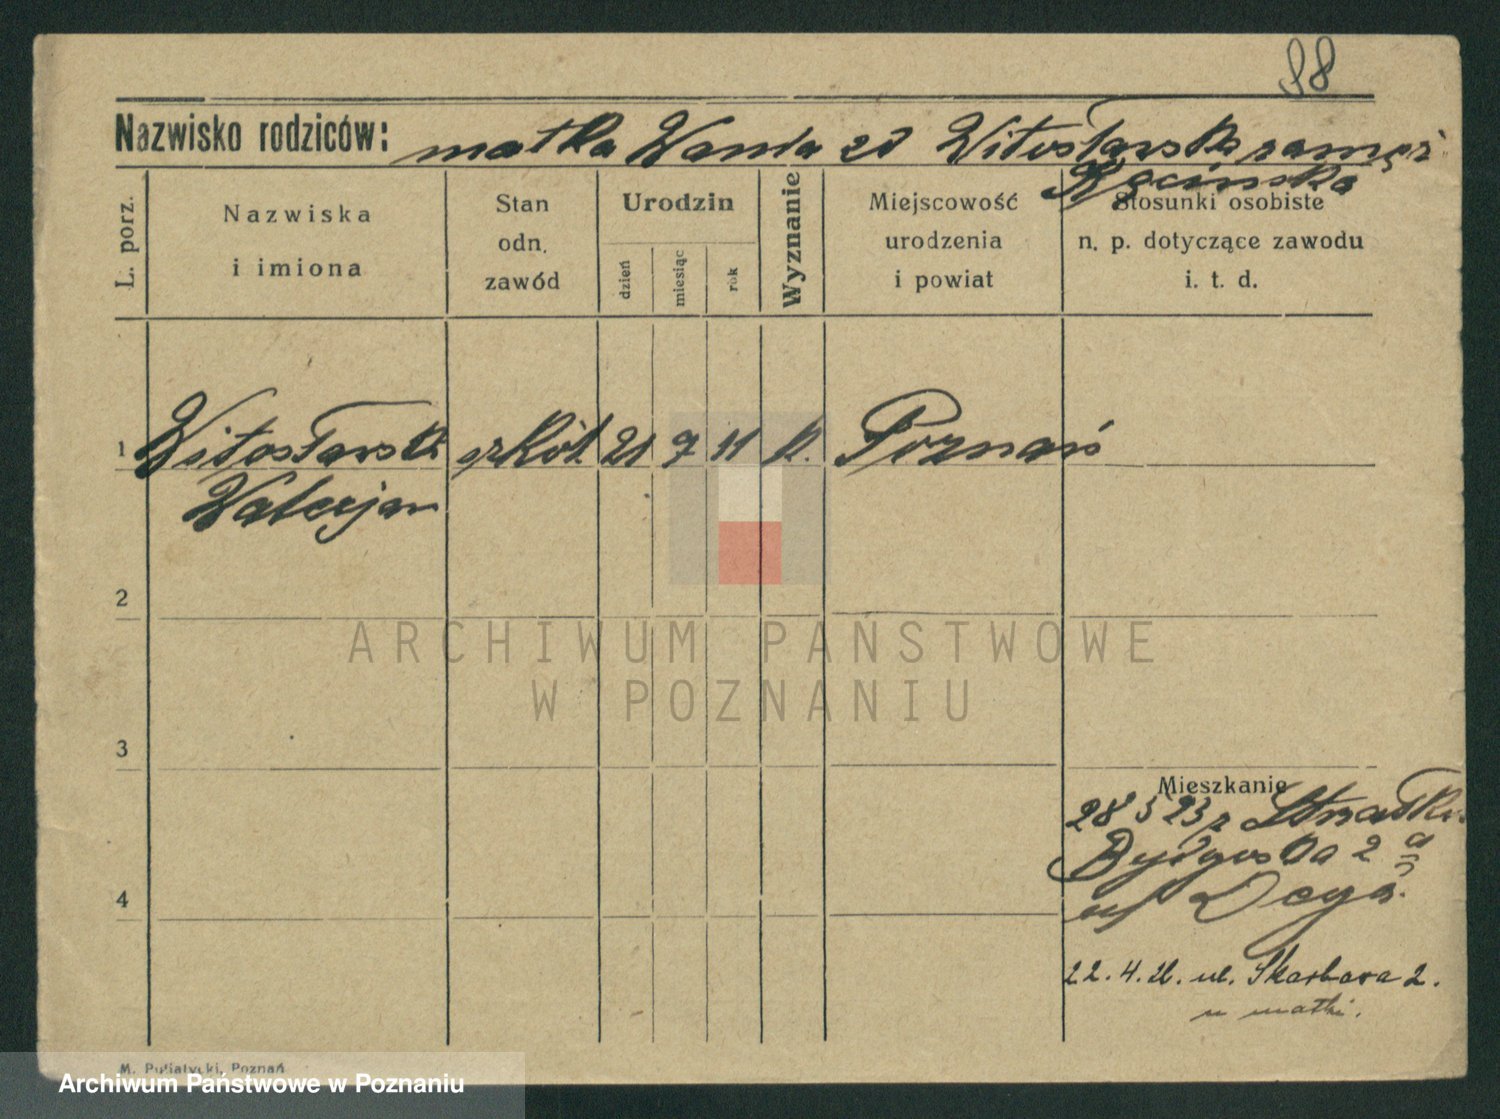 98
Nazwisko rodziców: matka Wanda zd Witosławska zamęż
Kęcińska
L. porz.
Nazwiska
i imiona
Stan
odn.
zawód
Urodzin
dzień
miesiąc
rok
Wyznanie
Miejscowość
urodzenia
i powiat
Stosunki osobiste
n. p. dotyczące zawodu
i. t. d.
1 Witosławski szkół. 21 9 11 k. Poznań
Waleryan
2
ARCHIWUM PAŃSTWOWE
W POZNANIU
3
Mieszkanie
28 5 23 z
Bydgoska 2 a
4
22.4.26. ul. Skarbowa 2.
u matki.
M. Pujatycki, Poznań
Archiwum Państwowe w Poznaniu